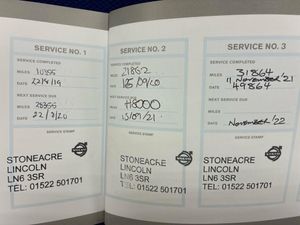 SERVICE NO. 1
SERVICE COMPLETED
MILES 10355
DATE
NEXT SERVICE DUE
MILES 28355
DATE 22/2/20
SERVICE STAMP
STONEACRE
LINCOLN
LN6 3SR
TEL: 01522 501701
SERVICE NO. 2
SERVICE COMPLETED
MILES
DATE
NEXT SERVICE DUE
MILES
DATE 15/09/21
SERVICE STAMP
STONEACRE
LINCOLN
LN6 3SR
TEL: 01522 501701
SERVICE NO. 3
SERVICE COMPLETED
MILES 31864
DATE 11 November '21
49864
NEXT SERVICE DUE
MILES
DATE November '22
SERVICE STAMP
STONEACRE
LINCOLN
LN6 3SR
TEL: 01522 501701